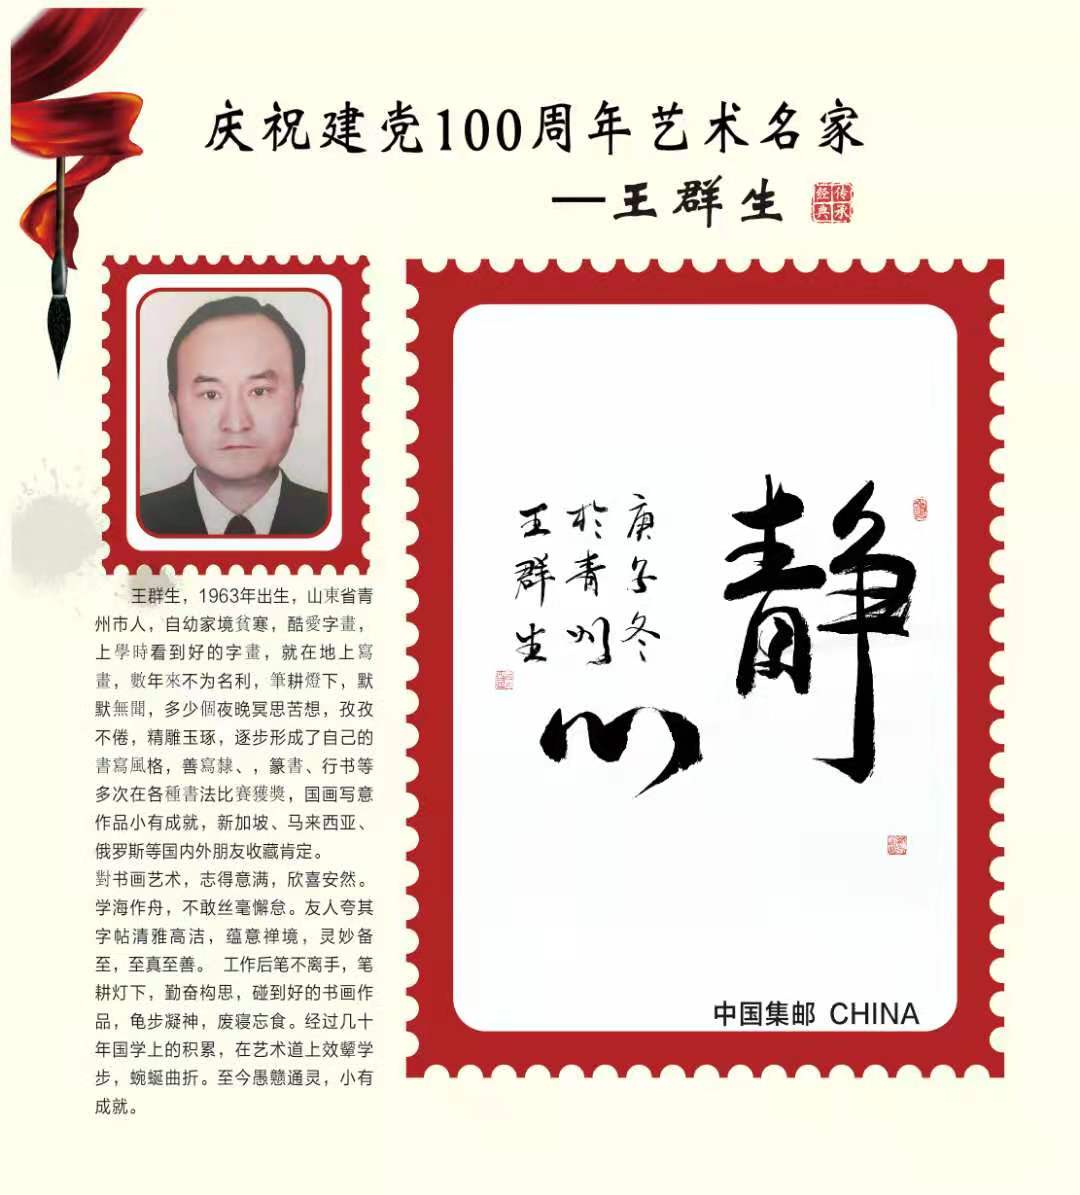 庆祝建党100周年艺术名家
—王群生
传承
经典
王群生，1963年出生，山東省青
州市人，自幼家境貧寒，酷愛字畫，
上學時看到好的字畫，就在地上寫
畫，數年來不为名利，筆耕燈下，默
默無聞，多少個夜晚冥思苦想，孜孜
不倦，精雕玉琢，逐步形成了自己的
書寫風格，善寫隸、，篆書、行书等
多次在各種書法比賽獲獎，国画写意
作品小有成就，新加坡、马来西亚、
俄罗斯等国内外朋友收藏肯定。
對书画艺术，志得意满，欣喜安然。
学海作舟，不敢丝毫懈怠。友人夸其
字帖清雅高洁，蕴意禅境，灵妙备
至，至真至善。 工作后笔不离手，笔
耕灯下，勤奋构思，碰到好的书画作
品，龟步凝神，废寝忘食。经过几十
年国学上的积累，在艺术道上效颦学
步，蜿蜒曲折。至今愚戆通灵，小有
成就。
靜
心
庚子冬
於青州
王群生
中国集邮 CHINA